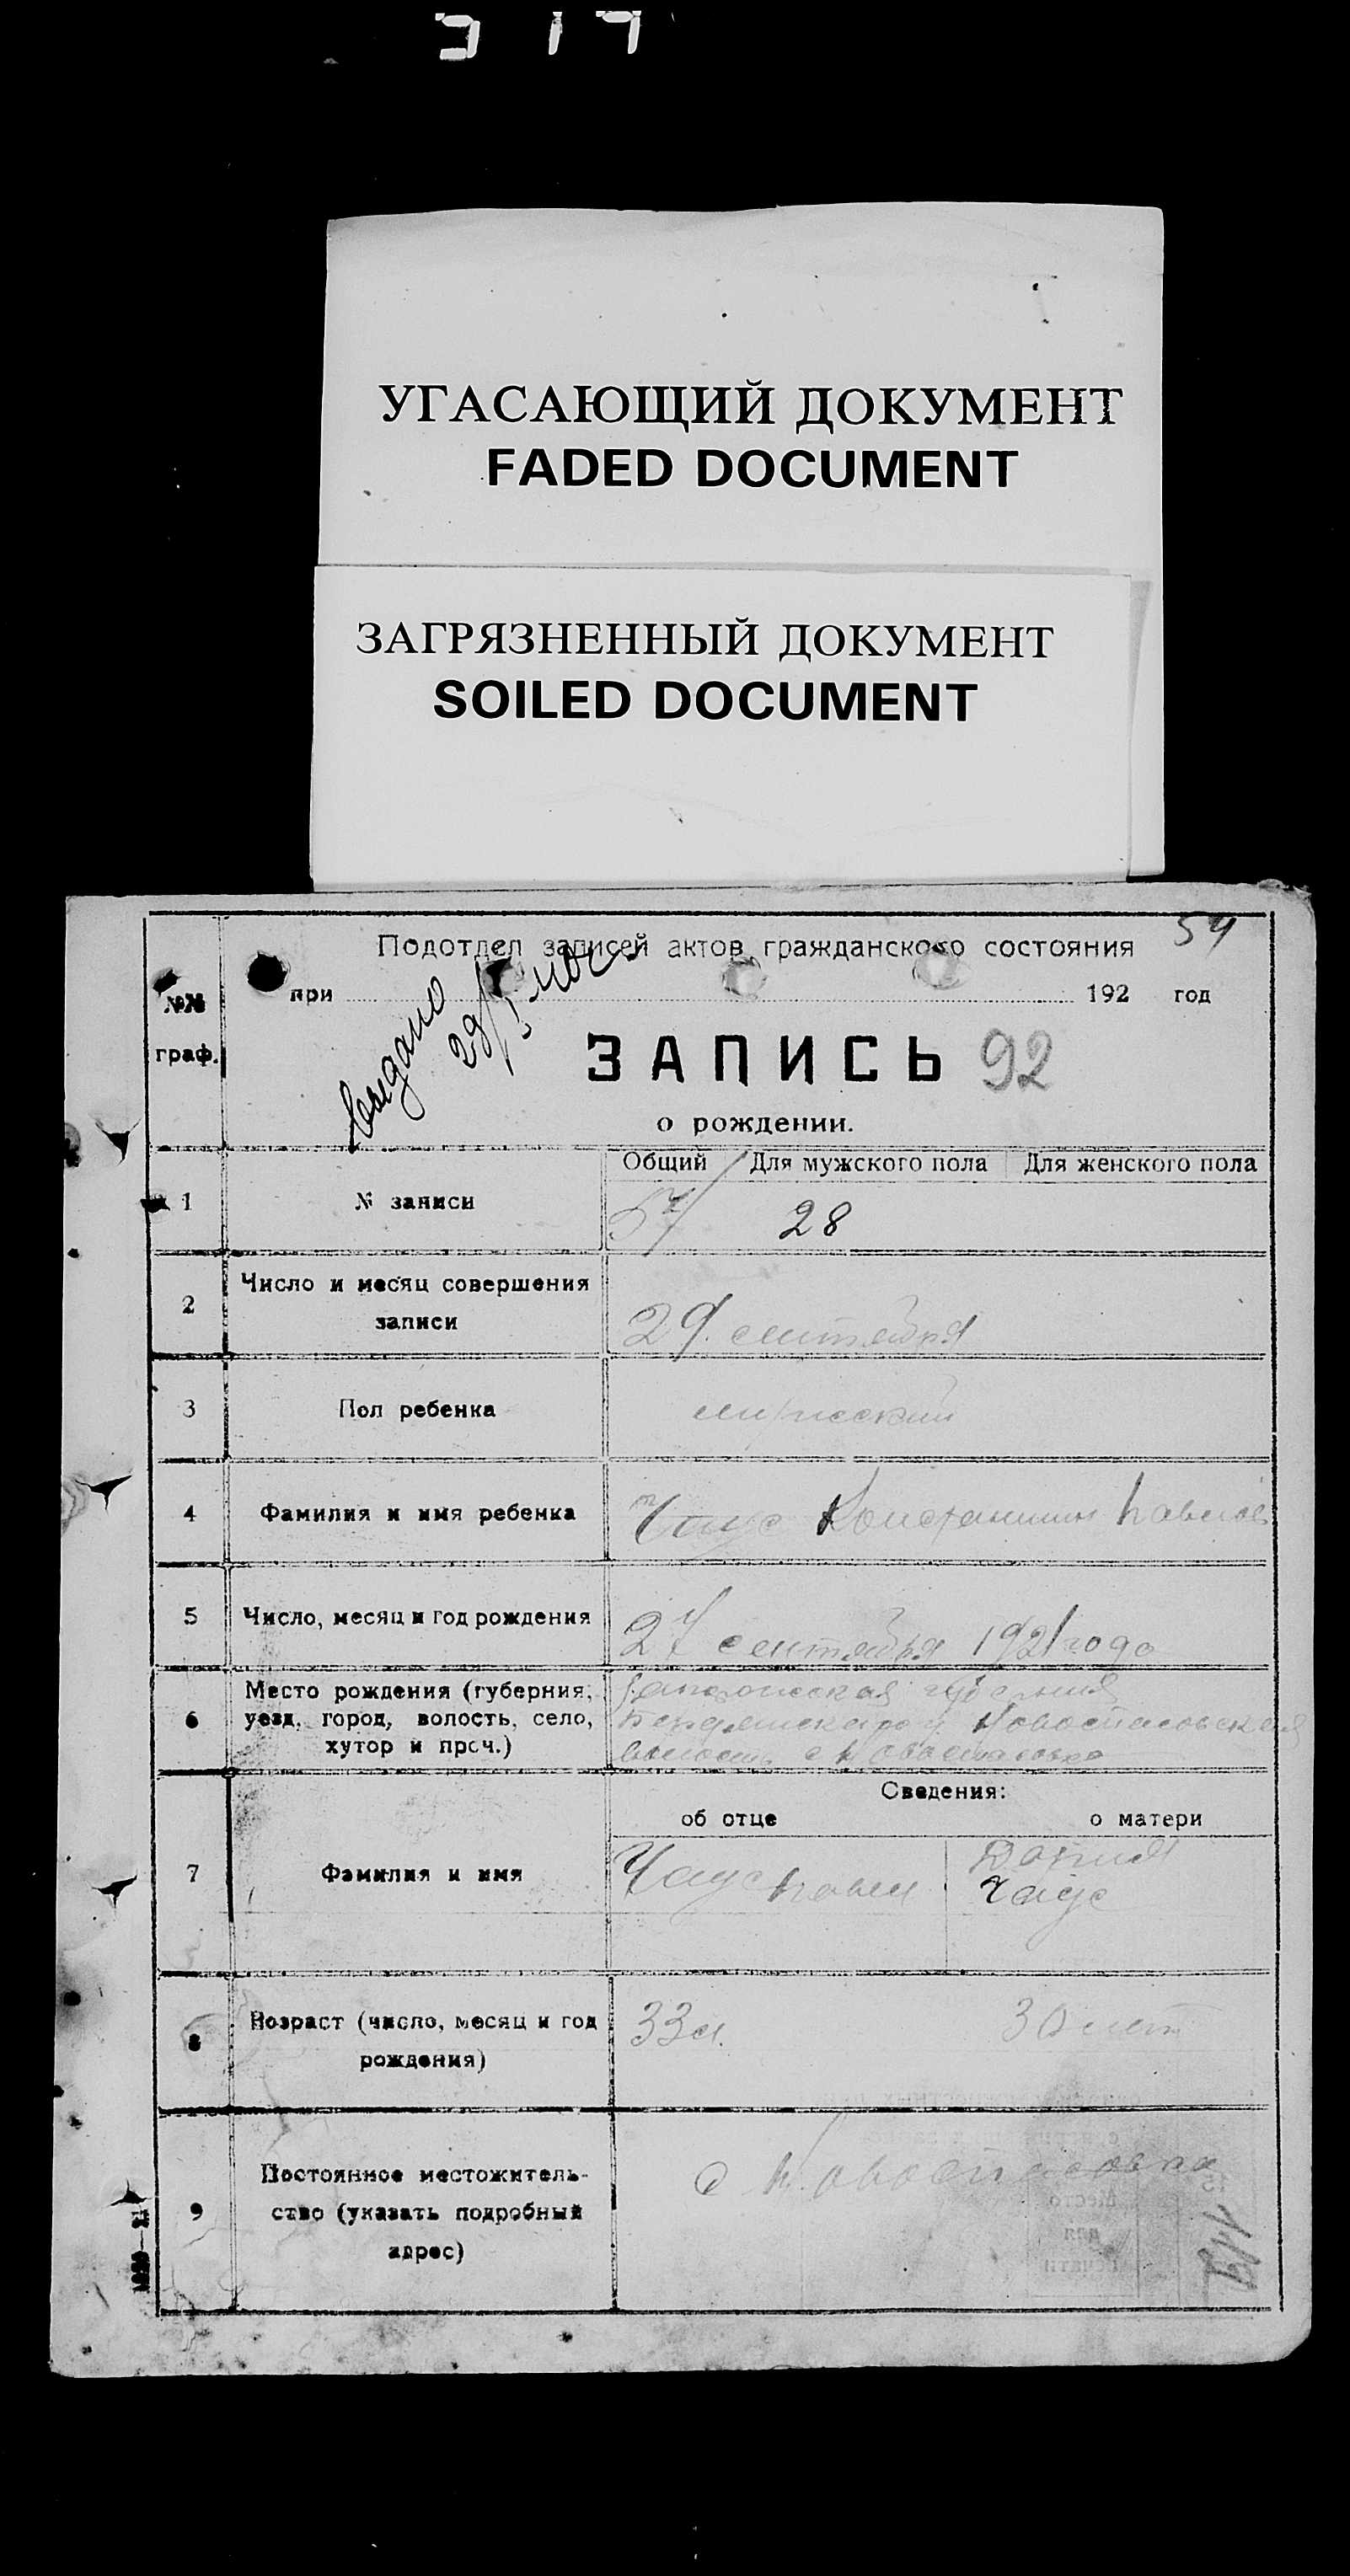 УГАСАЮЩИЙ ДОКУМЕНТ
FADED DOCUMENT
ЗАГРЯЗНЕННЫЙ ДОКУМЕНТ
SOILED DOCUMENT
54
Подотдел записей актов гражданского состояния
при 192 год
№№
граф.
Выдано
29/I
ЗАПИСЬ 92
о рождении.
Общий Для мужского пола Для женского пола
1 № записи 57 28
2 Число и месяц совершения
записи
29. сентября
3 Пол ребенка мужеский
4 Фамилия и имя ребенка Чаус Константин Павлов
5 Число, месяц и год рождения 27 сентября 1921 года
6 Место рождения (губерния,
уезд, город, волость, село,
хутор и проч.)
губерния
Бердянскаго у. Новоспасовская
волость с Новоспасовка
Сведения:
об отце о матери
7 Фамилия и имя Чаус Павел
Дария
Чаус
8 Возраст (число, месяц и год
рождения)
33 л. 30 лет
9 Постоянное местожитель-
ство (указать подробный
адрес)
с Новоспасовка